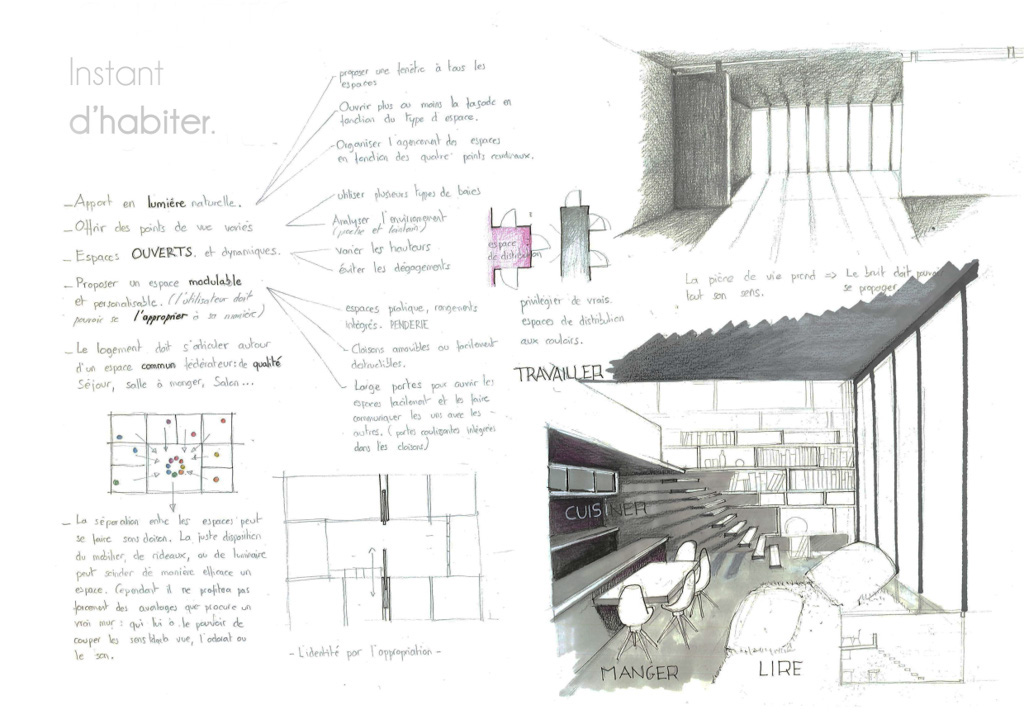 Instant
d'habiter.
proposer une fenêtre à tous les
espaces
Ouvrir plus ou moins la façade en
fonction du type d'espace.
Organiser l'agencement des espaces
en fonction des quatre points cardinaux.
_ Apport en lumière naturelle.
_ Offrir des points de vue variés
_ Espaces OUVERTS. et dynamiques.
_ Proposer un espace modulable
et personalisable. (l'utilisateur doit
pouvoir se l'approprier à sa manière)
_ Le logement doit s'articuler autour
d'un espace commun fédérateur: de qualité
Séjour, salle à manger, Salon...
utiliser plusieurs types de baies
Analyser l'environement
(proche et lointain)
varier les hauteurs
éviter les dégagements
espaces pratique, rangements
intégrés. PENDERIE
- Cloisons amovibles ou facilement
destructibles.
- Large portes pour ouvrir les
espaces facilement et les faire
communiquer les uns avec les
autres. (portes coulissantes intégrées
dans les cloisons)
espace
de distribution
privilégier de vrais
espaces de distribution
aux couloirs.
La pièce de vie prend => Le bruit doit pouvoir
tout son sens. se propager
_ La séparation entre les espaces peut
se faire sans cloison. La juste disposition
du mobilier, de rideaux, ou de luminaire
peut scinder de manière efficace un
espace. Cependant il ne profitera pas
forcement des avantages que procure un
vrai mur: qui lui à le pouvoir de
couper les sens vue, l'odorat ou
le son.
- L'identité par l'appropriation -
TRAVAILLER
CUISINER
MANGER
LIRE